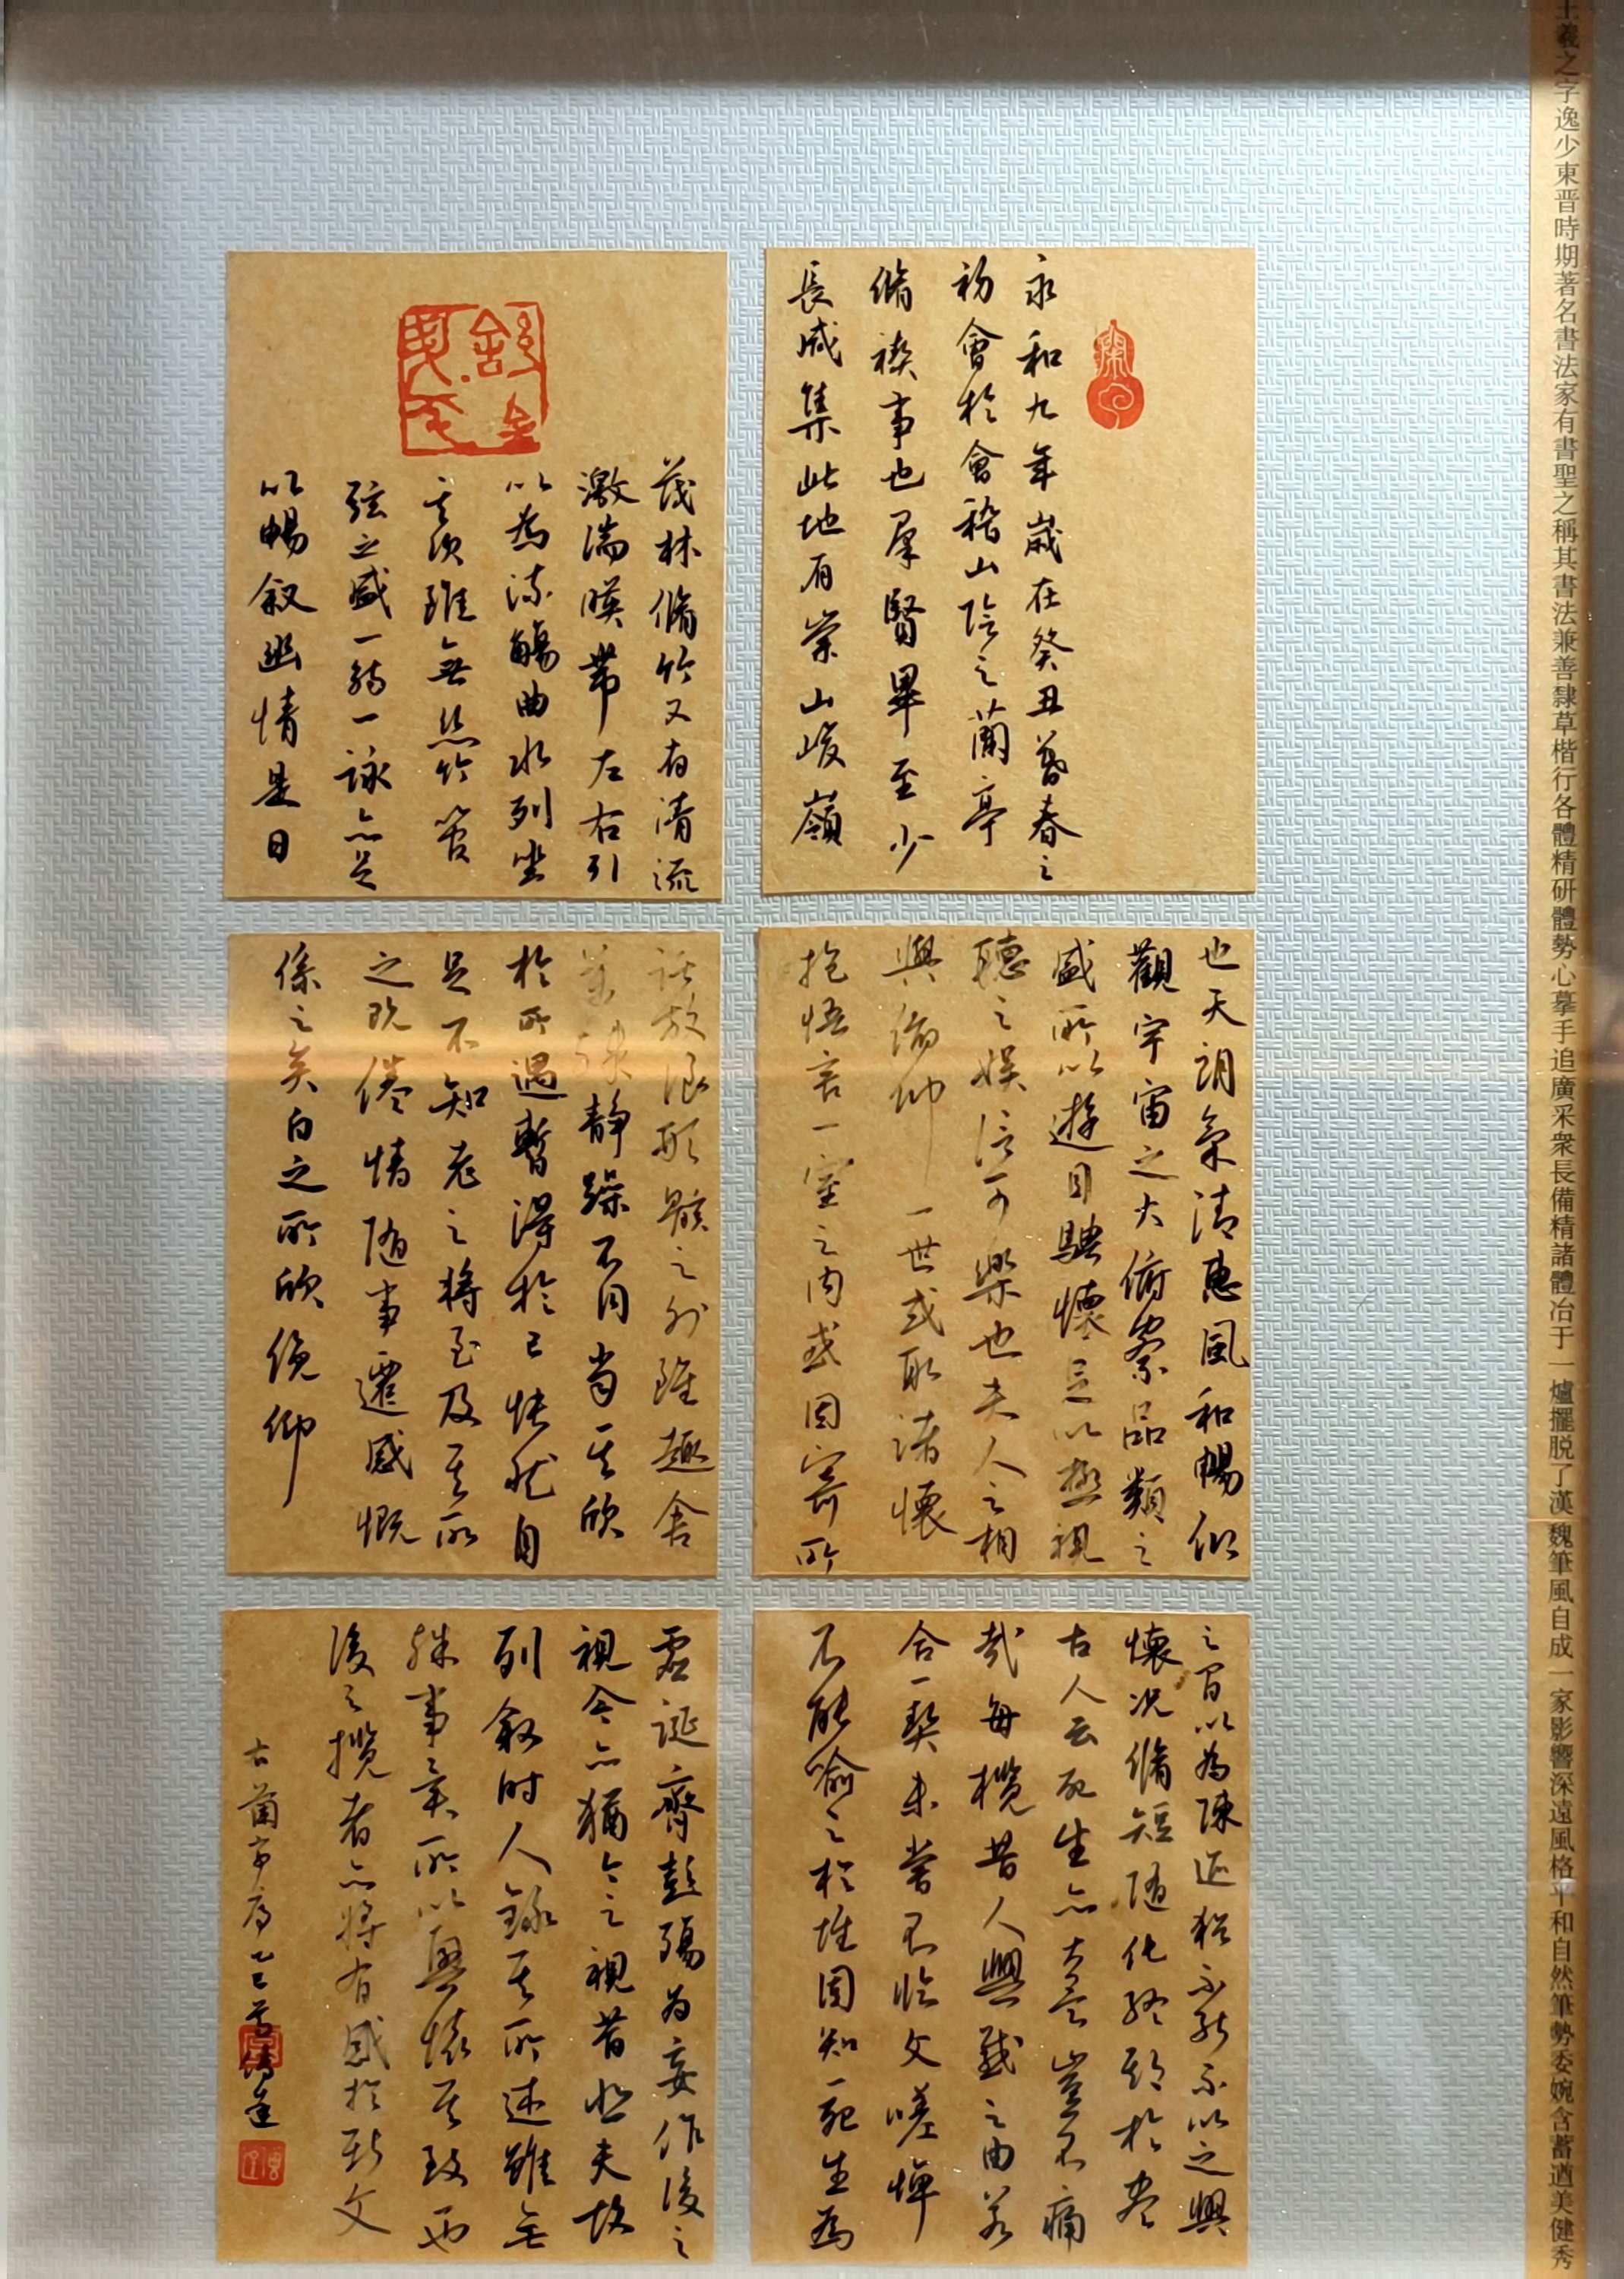 王羲之字逸少東晋時期著名書法家有書聖之稱其書法兼善隸草楷行各體精研體勢心摹手追廣采衆長備精諸體冶于一爐擺脱了漢魏筆風自成一家影響深遠風格平和自然筆勢委婉含蓄遒美健秀
永和九年歲在癸丑暮春之
初會於會稽山陰之蘭亭
脩禊事也羣賢畢至少
長咸集此地有崇山峻嶺
茂林脩竹又有清流
激湍暎帶左右引
以為流觴曲水列坐
其次雖無絲竹管
弦之盛一觴一詠亦足
以暢叙幽情是日
也天朗氣清惠風和暢仰
觀宇宙之大俯察品類之
盛所以遊目騁懷足以極視
聽之娛信可樂也夫人之相
與俯仰一世或取諸懷
抱悟言一室之內或因寄所
託放浪形骸之外雖趣舍
萬殊靜躁不同當其欣
於所遇暫得於己快然自
足不知老之將至及其所
之既倦情隨事遷感慨
係之矣向之所欣俛仰
之間以為陳迹猶不能不以之興
懷况脩短隨化終期於盡
古人云死生亦大矣豈不痛
哉每攬昔人興感之由若
合一契未嘗不臨文嗟悼
不能喻之於懷固知一死生為
虛誕齊彭殤為妄作後之
視今亦猶今之視昔悲夫故
列叙時人錄其所述雖世
殊事異所以興懷其致一也
後之攬者亦將有感於斯文
古蘭亭序乙巳